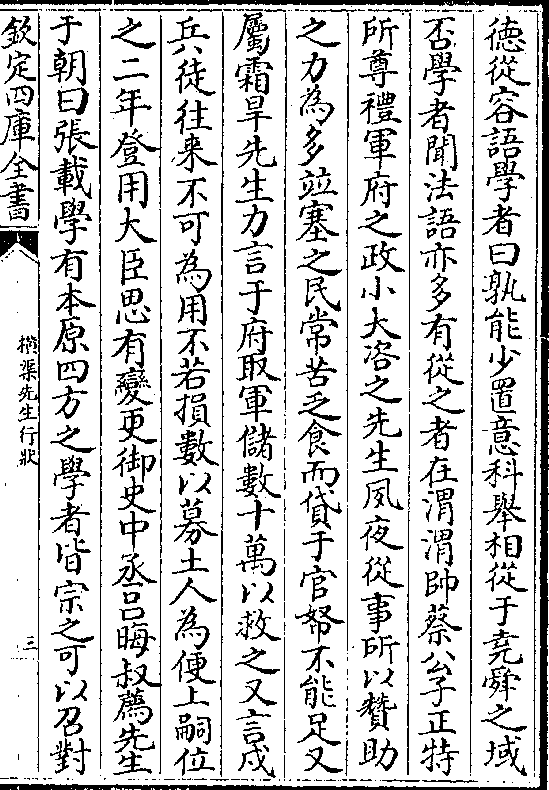 德從容語學者曰孰能少置意科舉相從于堯舜之域
否學者聞法語亦多有從之者在渭渭帥蔡公子正特
所尊禮軍府之政小大咨之先生夙夜從事所以贊助
之力為多竝塞之民常苦乏食而貸于官帑不能足又
屬霜旱先生力言于府取軍儲數十萬以救之又言戍
兵徒往来不可為用不若損數以募土人為便上嗣位
之二年登用大臣思有變更御史中丞吕晦叔薦先生
于朝曰張載學有本原四方之學者皆宗之可以召對
欽定四庫全書
橫渠先生行狀
三